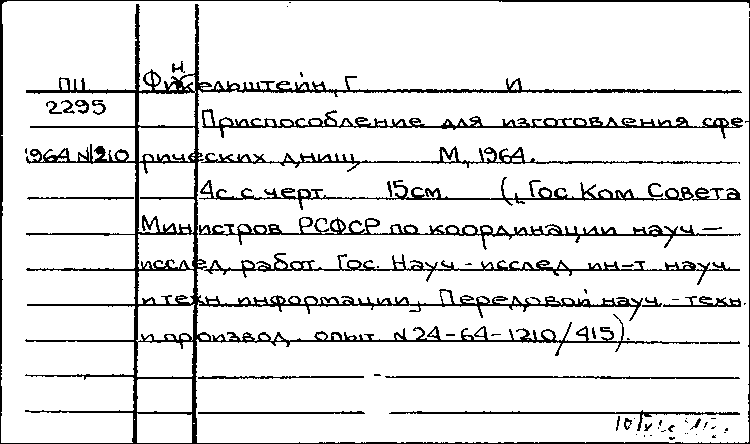 ПЦ Финкельштейн, Г И
2295 Приспособление для изготовления сфе-
1964 N1210 рических днищ, М, 1964.
4с. с черт. 15см. ([Гос. Ком. Совета
Министров РСФСР по координации науч-
исслед. работ. Гос. Науч-исслед. ин-т науч.
и техн. информации]. Передовой науч.-техн.
и производ. опыт. N24-64-1210/415).